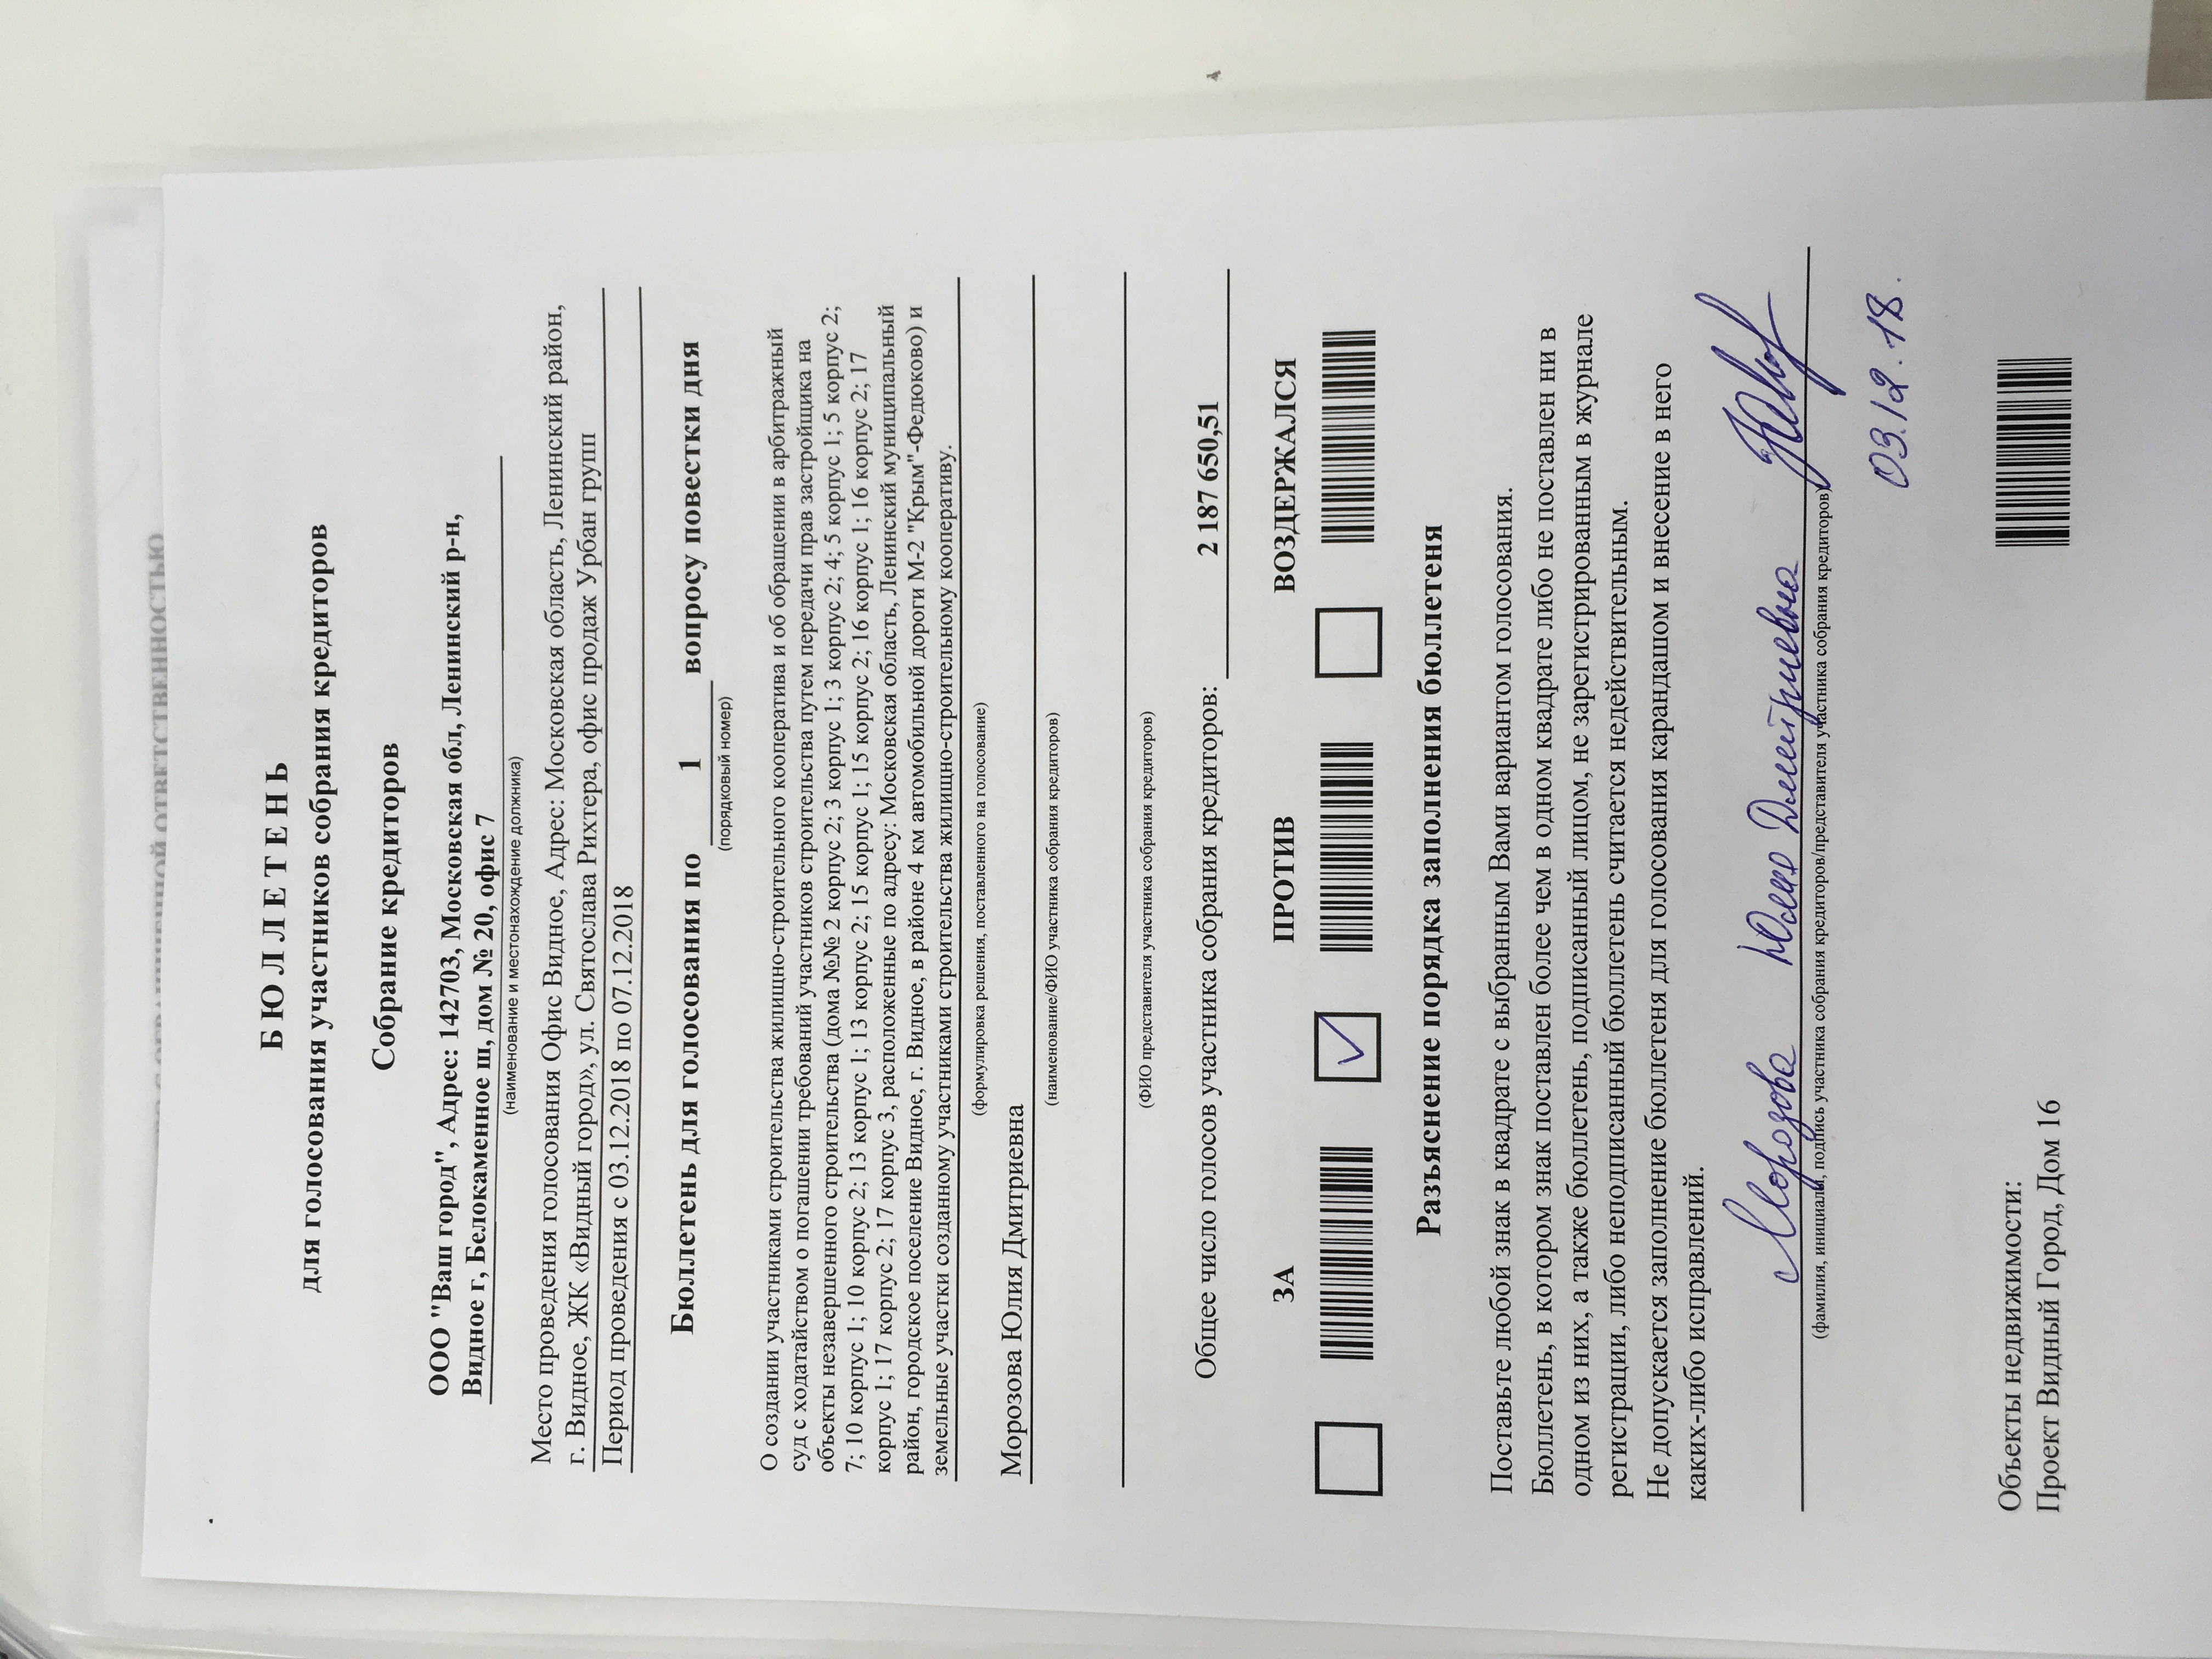 ОТВЕТСТВЕННОСТЬЮ
БЮЛЛЕТЕНЬ
для голосования участников собрания кредиторов
Собрание кредиторов
ООО "Ваш город", Адрес: 142703, Московская обл, Ленинский р-н,
Видное г, Белокаменное ш, дом № 20, офис 7
(наименование и местонахождение должника)
Место проведения голосования Офис Видное, Адрес: Московская область, Ленинский район,
г. Видное, ЖК «Видный город», ул. Святослава Рихтера, офис продаж Урбан групп
Период проведения с 03.12.2018 по 07.12.2018
Бюллетень для голосования по 1 вопросу повестки дня
(порядковый номер)
О создании участниками строительства жилищно-строительного кооператива и об обращении в арбитражный
суд с ходатайством о погашении требований участников строительства путем передачи прав застройщика на
объекты незавершенного строительства (дома №№ 2 корпус 2; 3 корпус 1; 3 корпус 2; 4; 5 корпус 1; 5 корпус 2;
7; 10 корпус 1; 10 корпус 2; 13 корпус 1; 13 корпус 2; 15 корпус 1; 15 корпус 2; 16 корпус 1; 16 корпус 2; 17
корпус 1; 17 корпус 2; 17 корпус 3, расположенные по адресу: Московская область, Ленинский муниципальный
район, городское поселение Видное, г. Видное, в районе 4 км автомобильной дороги М-2 "Крым"-Федюково) и
земельные участки созданному участниками строительства жилищно-строительному кооперативу.
(формулировка решения, поставленного на голосование)
Морозова Юлия Дмитриевна
(наименование/ФИО участника собрания кредиторов)
(ФИО представителя участника собрания кредиторов)
Общее число голосов участника собрания кредиторов: 2 187 650,51
ЗА ПРОТИВ ВОЗДЕРЖАЛСЯ
Разъяснение порядка заполнения бюллетеня
Поставьте любой знак в квадрате с выбранным Вами вариантом голосования.
Бюллетень, в котором знак поставлен более чем в одном квадрате либо не поставлен ни в
одном из них, а также бюллетень, подписанный лицом, не зарегистрированным в журнале
регистрации, либо неподписанный бюллетень считается недействительным.
Не допускается заполнение бюллетеня для голосования карандашом и внесение в него
каких-либо исправлений.
Морозова Юлия Дмитриевна
(фамилия, инициалы, подпись участника собрания кредиторов/представителя участника собрания кредиторов)
03.12.18.
Объекты недвижимости:
Проект Видный Город, Дом 16